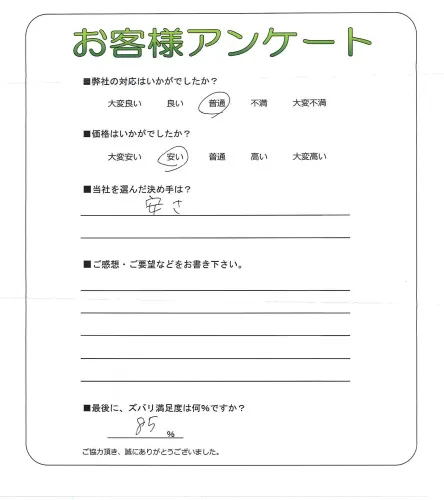 お客様アンケート
■弊社の対応はいかがでしたか?
大変良い 良い 普通 不満 大変不満
■価格はいかがでしたか?
大変安い 安い 普通 高い 大変高い
■当社を選んだ決め手は?
安さ
■ご感想・ご要望などをお書き下さい。
■最後に、ズバリ満足度は何%ですか?
85 %
ご協力頂き、誠にありがとうございました。